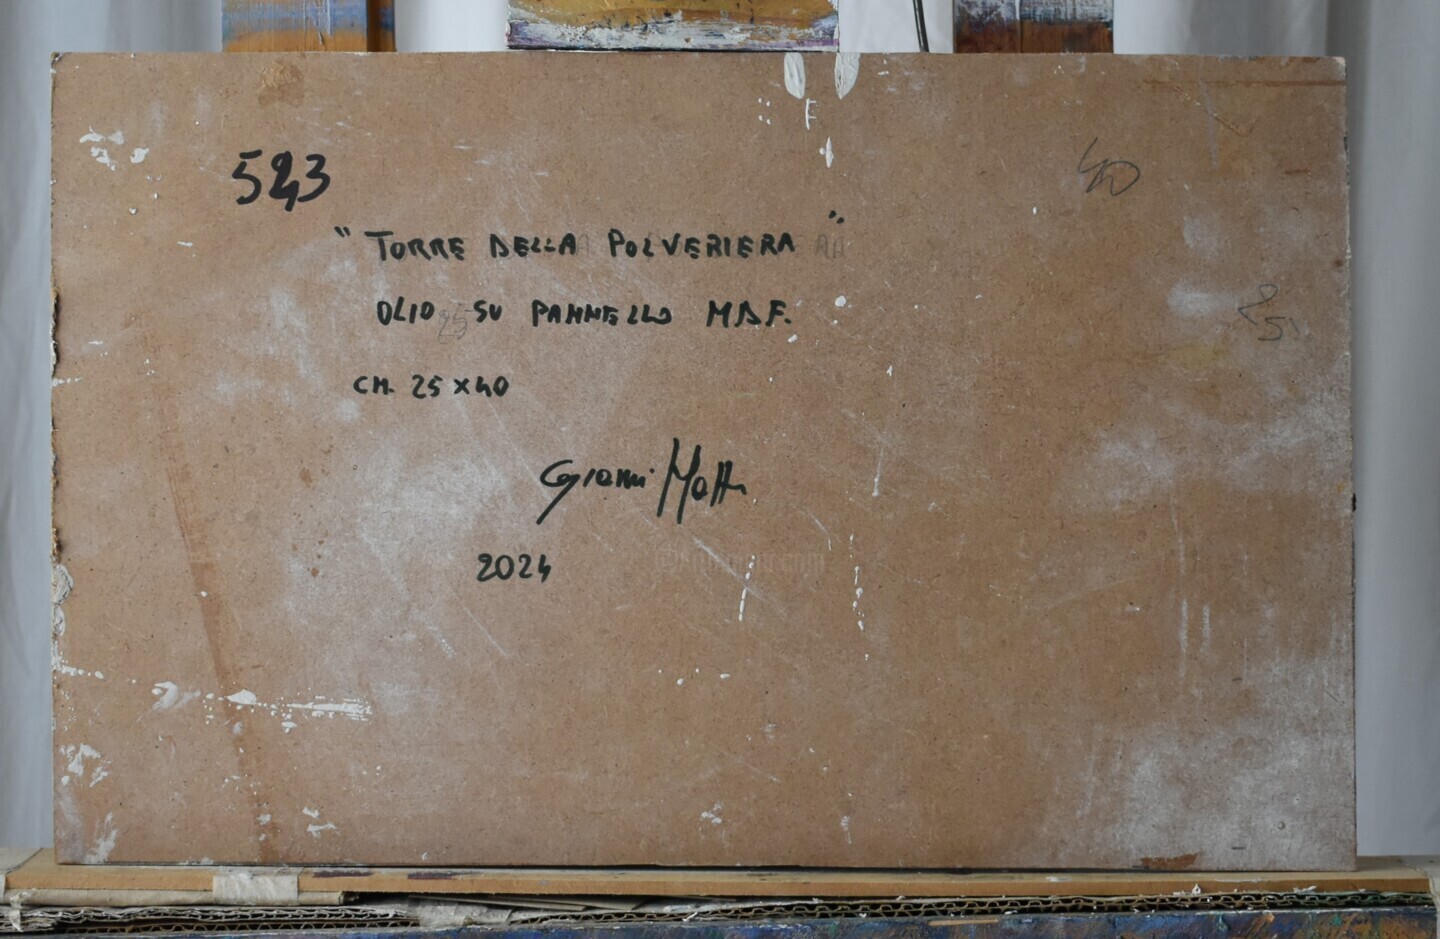 523 40
" TORRE DELLA POLVERIERA "
OLIO SU PANNELLO M.D.F.
25
25
CM. 25 x 40
Gianni Matti
2024